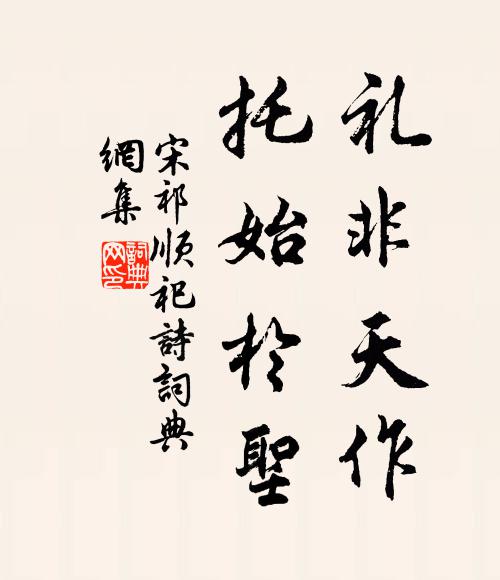 礼非天作
托始於聖
宋祁順祀詩詞典
網集
詞典
网印